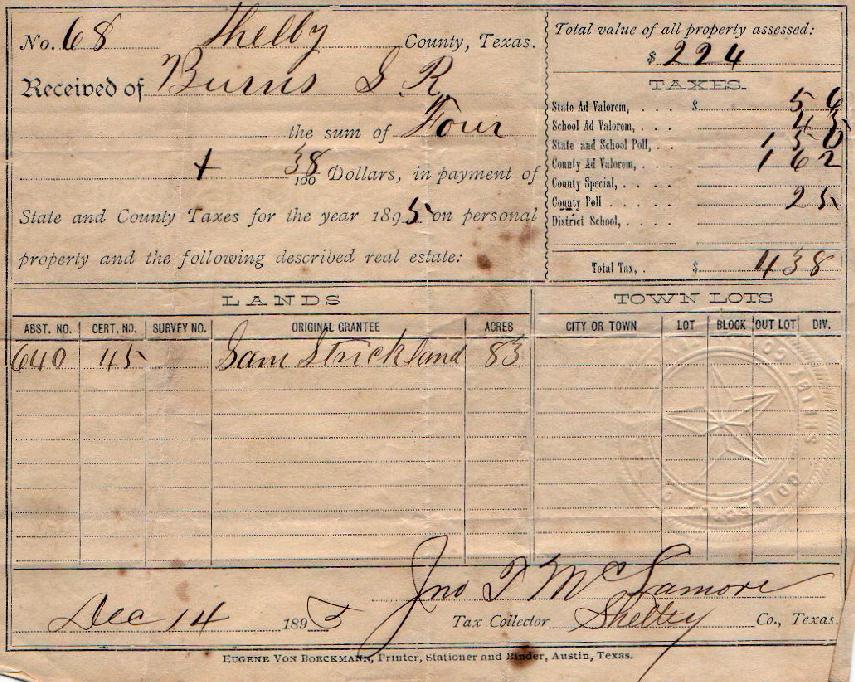 No. 68 Shelby County, Texas.
Received of Burns S R
the sum of Four
+ 38/100 Dollars, in payment of
State and County Taxes for the year 1895 on personal
property and the following described real estate:
Total value of all property assessed:
$ 224
TAXES.
State Ad Valorem, . . . . $ 56
School Ad Valorem, . . . 45
State and School Poll, . . . 1 50
County Ad Valorem, . . . 1 62
County Special, . . . .
County Poll . . . . 25
District School, . . . .
Total Tax, . $ 4 38
LANDS
ABST. NO. CERT. NO. SURVEY NO. ORIGINAL GRANTEE ACRES
640 45 Sam Strickland 83
TOWN LOTS
CITY OR TOWN LOT BLOCK OUT LOT DIV.
Dec 14 1895
Jno
Tax Collector Shelby Co., Texas.
EUGENE VON BOECKMANN, Printer, Stationer and Binder, Austin, Texas.